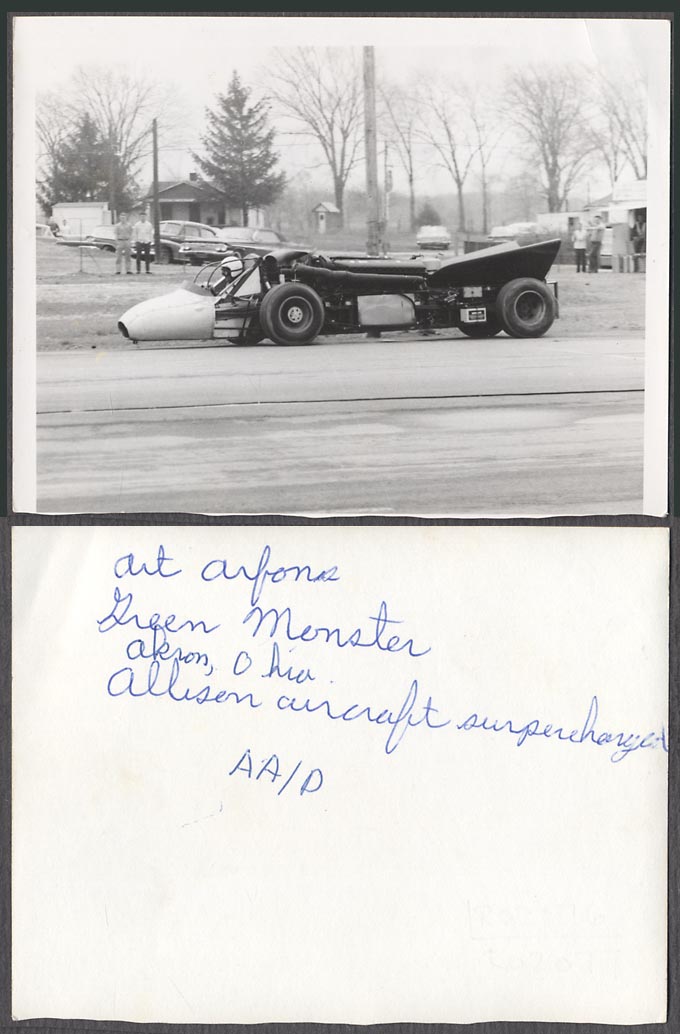 Art Arfons
Green Monster
Akron, Ohio.
Allison aircraft surpercharged
AA/D